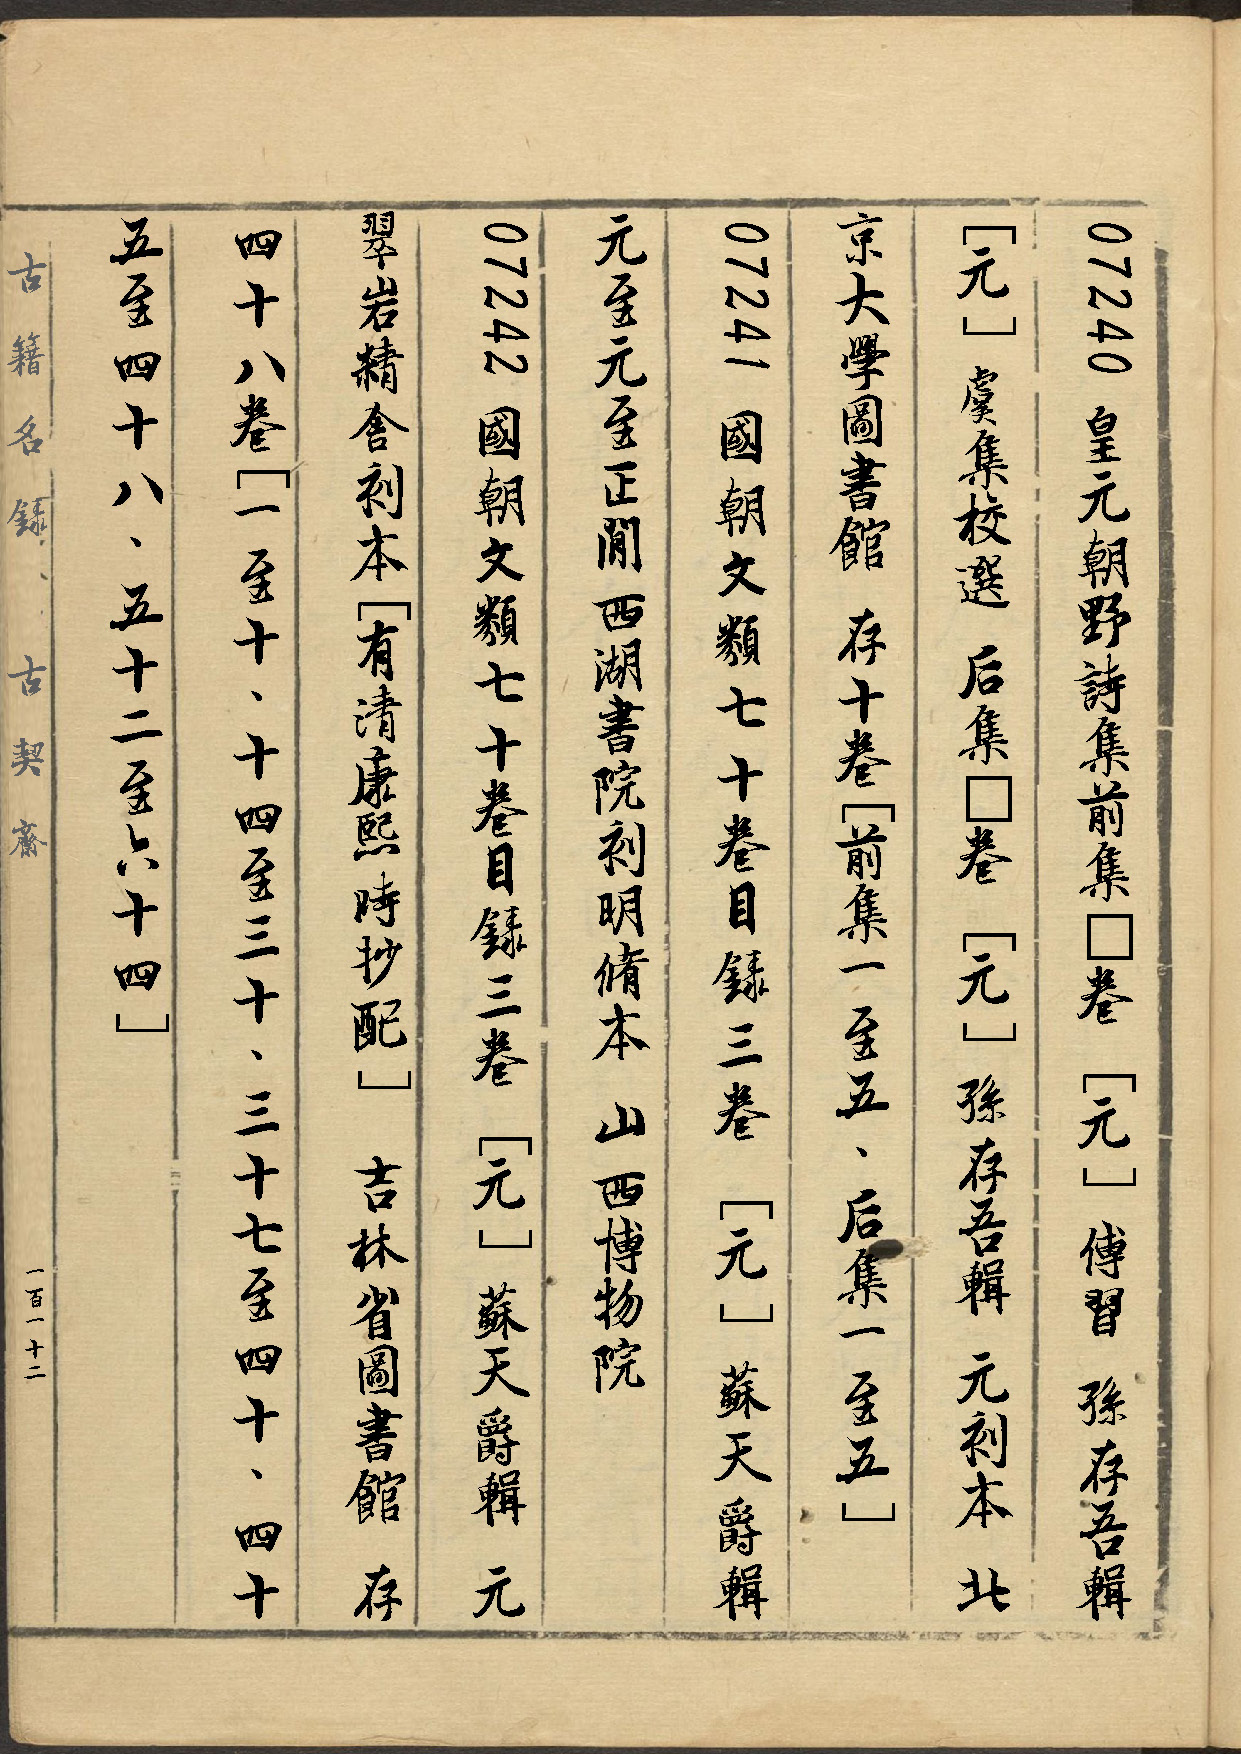 07240 皇元朝野詩集前集□卷 [元] 傅習 孫存吾輯
[元] 虞集校選 后集□卷 [元] 孫存吾輯 元刻本 北
京大學圖書館 存十卷[前集一至五、后集一至五]
07241 國朝文類七十卷目錄三卷 [元] 蘇天爵輯
元至元至正間西湖書院刻明脩本 山西博物院
07242 國朝文類七十卷目錄三卷 [元] 蘇天爵輯 元
翠岩精舍刻本[有清康熙時抄配] 吉林省圖書館 存
四十八卷[一至十、十四至三十、三十七至四十、四十
五至四十八、五十二至六十四]
古籍名錄、古契齋
一百一十二